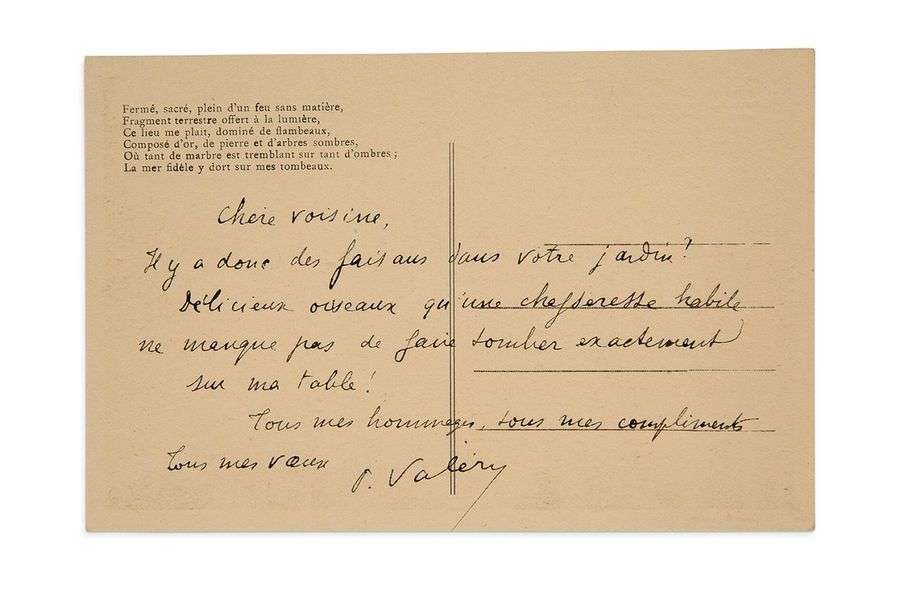 Fermé, sacré, plein d'un feu sans matière,
Fragment terrestre offert à la lumière,
Ce lieu me plait, dominé de flambeaux,
Composé d'or, de pierre et d'arbres sombres,
Où tant de marbre est tremblant sur tant d'ombres ;
La mer fidèle y dort sur mes tombeaux.
Chère voisine,
Il y a donc des faisans dans votre jardin!
Délicieux oiseaux qu'une chasseresse habile
ne manque pas de faire tomber exactement
sur ma table!
Tous mes hommages, tous mes compliments
Tous mes vœux P. Valéry